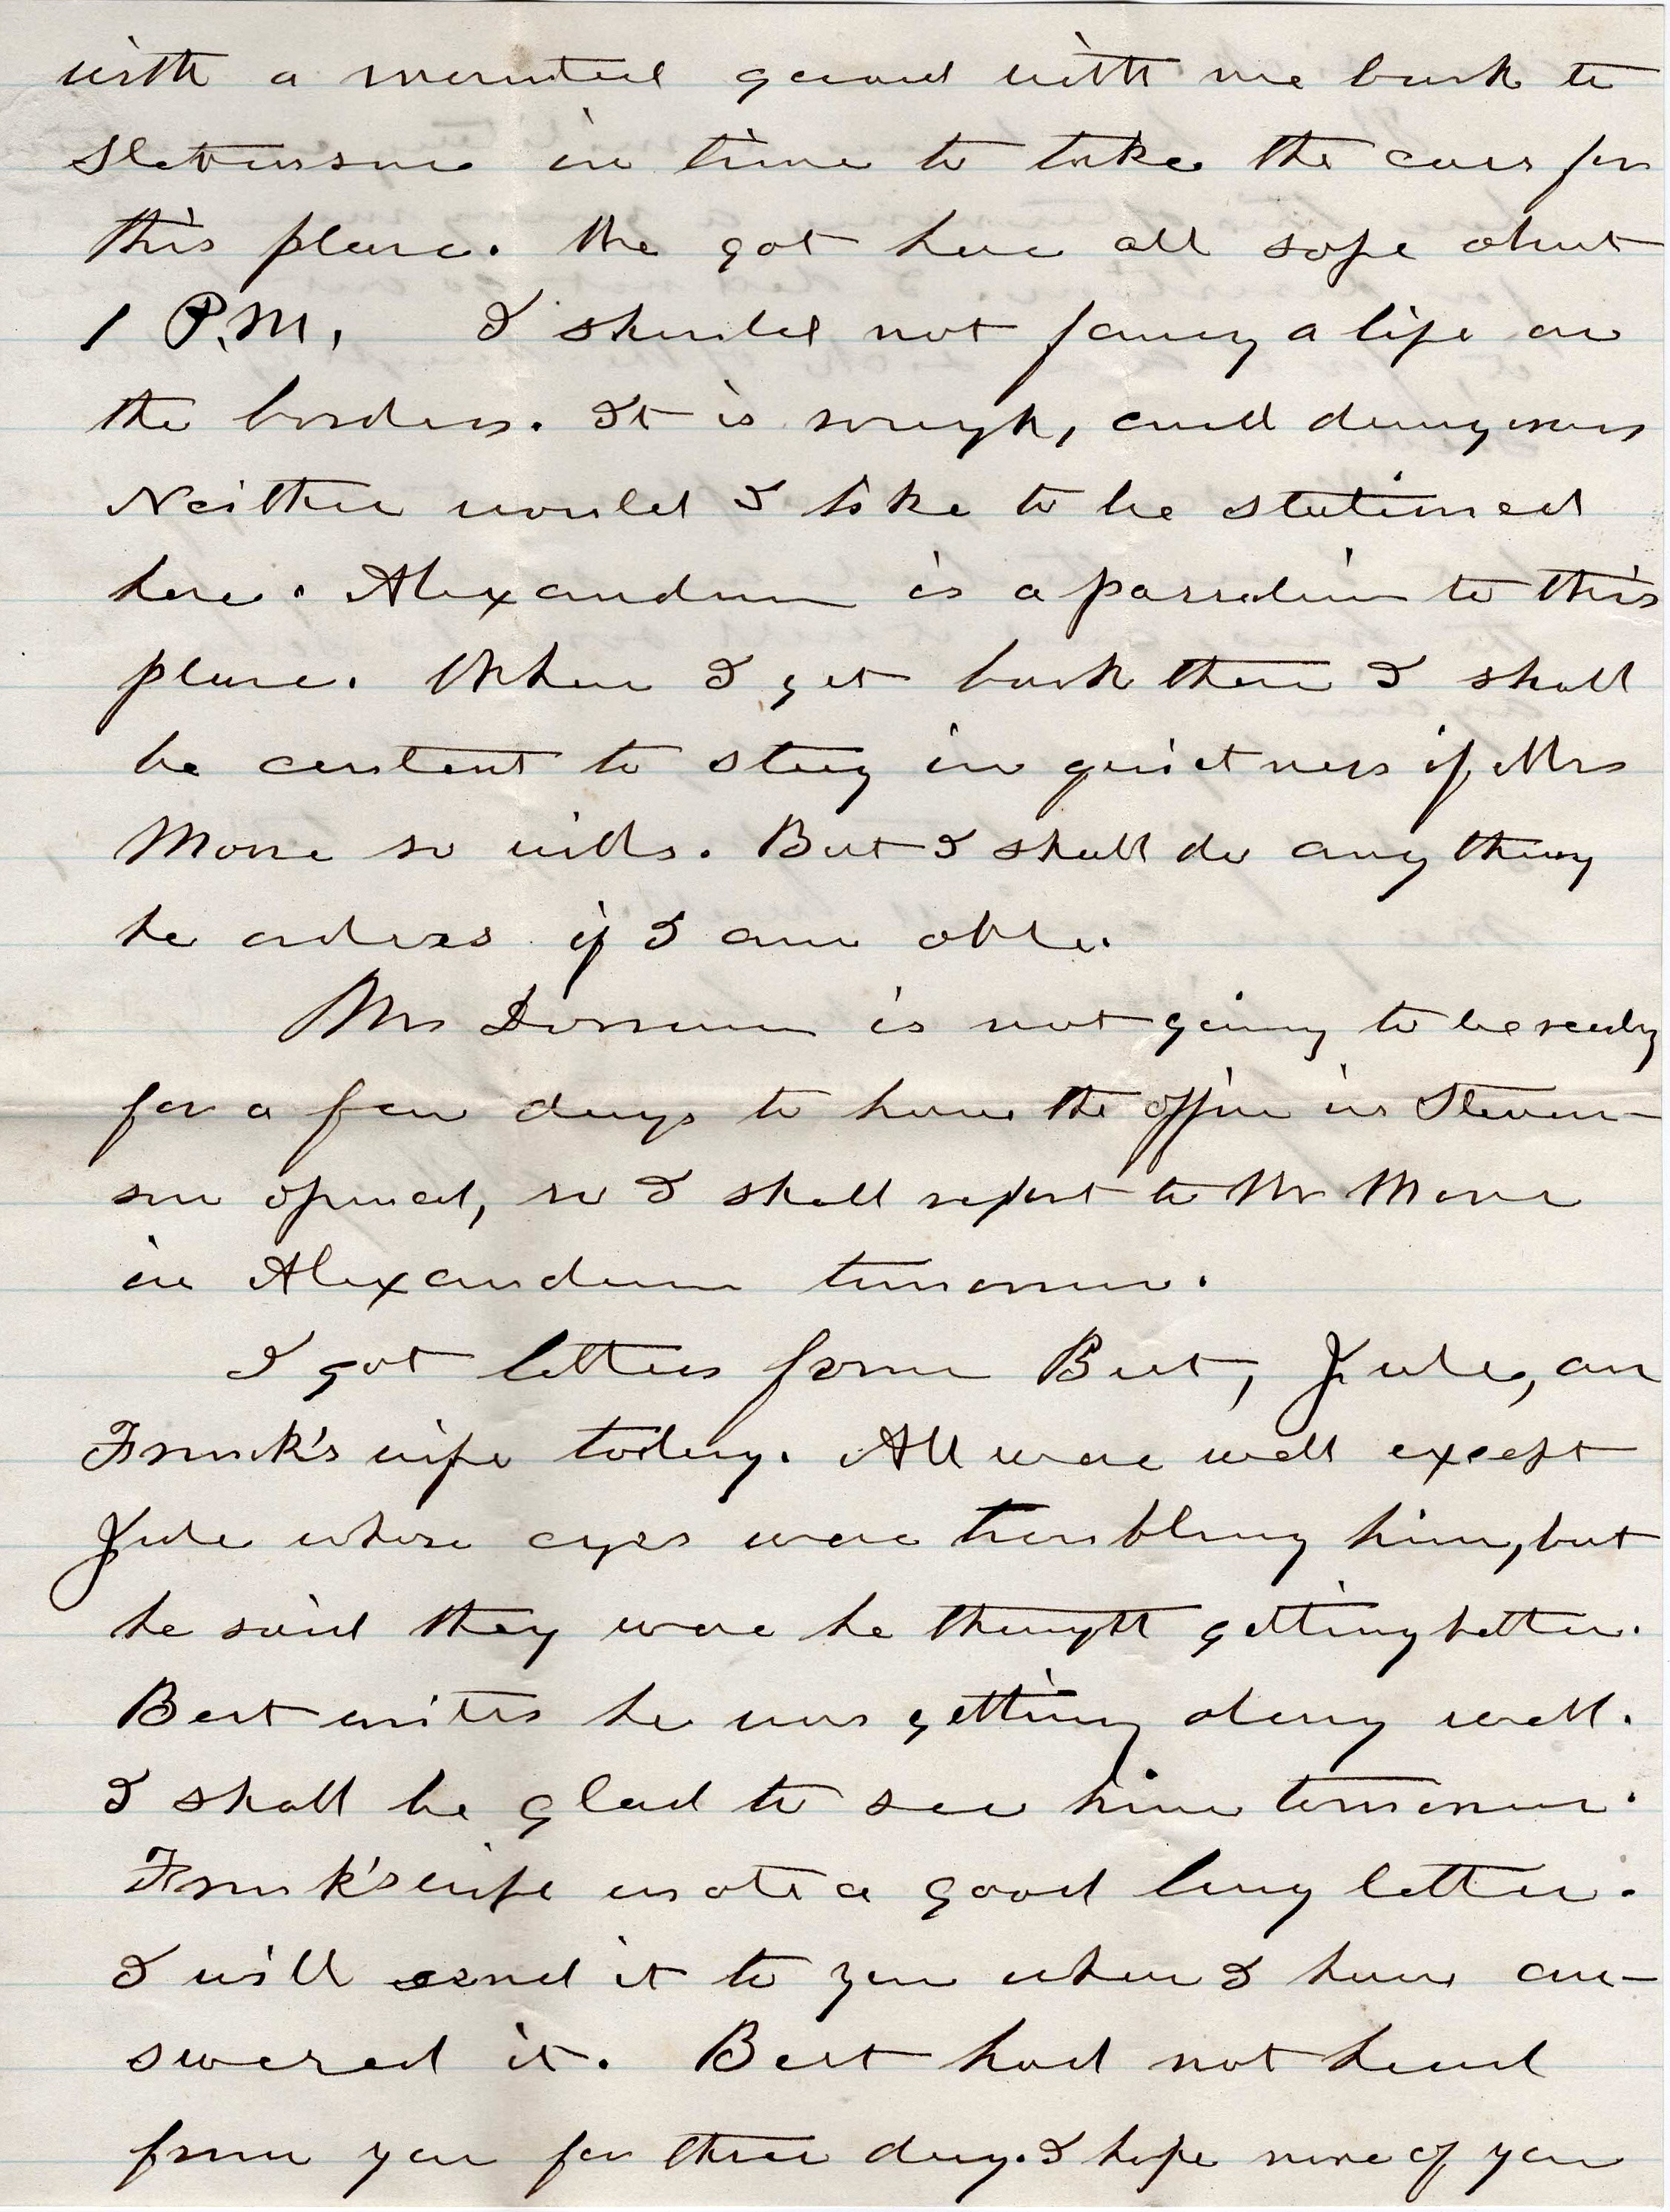 with a mounted guard with me back to
Stevenson in time to take the cars for
this place. We got here all safe about
1 P.M. I should not fancy a life on
the borders. It is rough, and dangerous
Neither would I like to be stationed
here. Alexandria is a parradim to this
place. When I get back there I shall
be content to stay in quietness if Mrs
Morse so wills. But I shall do any thing
he orders if I am able.
Mrs is not going to be ready
for a few days to have the office in Steven-
son opened, so I shall report to Mr Morse
in Alexandria tomorrow.
I got letters from Bert, Jule, an
Frank's wife today. All were well except
Jule whose eyes were troubling him, but
he said they were he thought getting better.
Bert writes he was getting along well.
I shall be glad to see him tomorrow.
Frank's wife wrote a good long letter.
I will send it to you when I have an-
swered it. Bert had not heard
from you for three day. I hope none of you